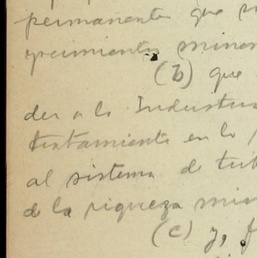 permanente que
miner
(b) que
der a la Industria
tratamiento en lo
al sistema de
de la riqueza min
(c) y, f